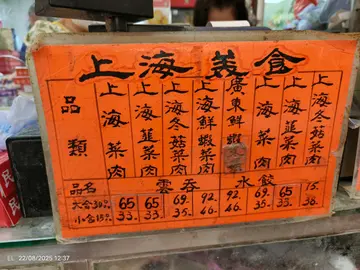 上海美食
品類
上海菜肉
上海韮菜肉
上海冬菇菜肉
上海鮮蝦菜肉
廣東鮮蝦
上海菜肉
上海韮菜肉
上海冬菇菜肉
品名 雲吞 水餃
大合30隻 65 65 69. 92. 92. 69. 65 75.
小合15隻 33. 33. 35. 46. 46. 35. 33. 38.
22/08/2025 12:37